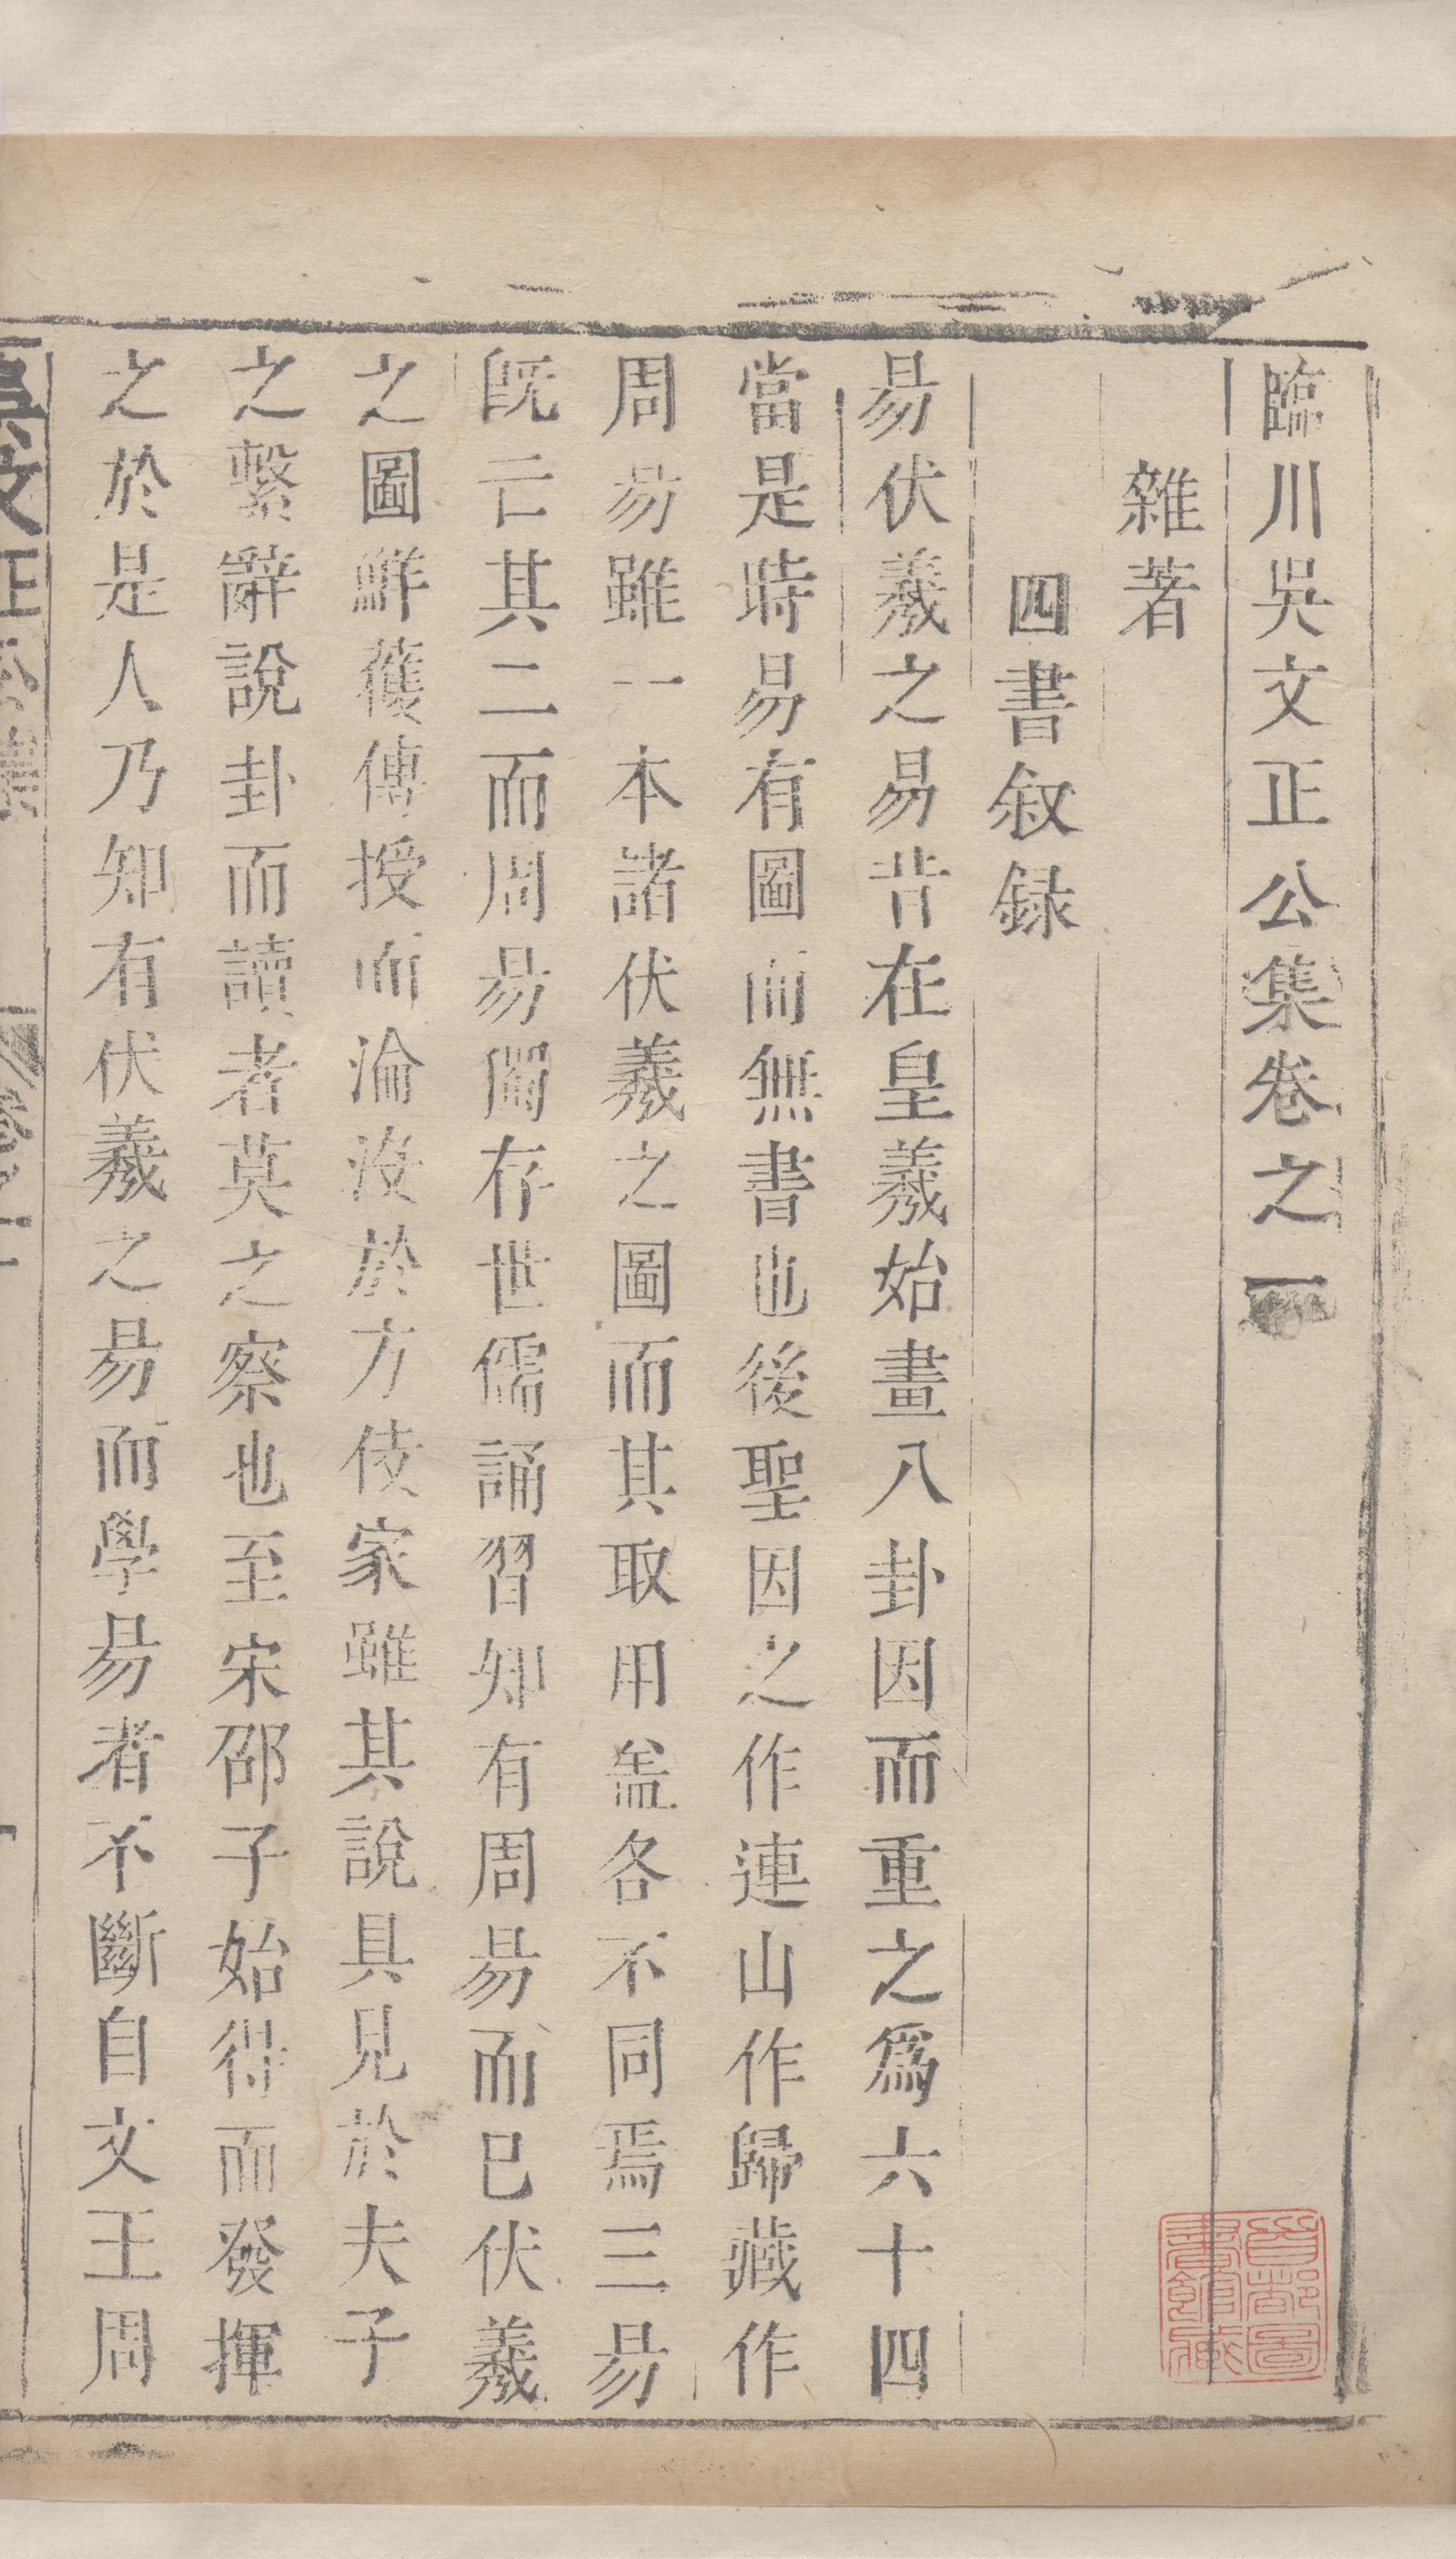 臨川吳文正公集卷之一
雜著
四書叙録
昜伏羲之易昔在皇羲始畫八卦因而重之爲六十四
當是時易有圖而無書也後聖因之作連山作歸藏作
周昜雖一本諸伏羲之圖而其取用盖各不同焉三昜
旣亡其二而周昜獨存世儒誦習知有周昜而已伏羲
之圖鮮獲傳授而淪沒於方伎家雖其說具見於夫子
之繫辭說卦而讀者莫之察也至宋邵子始得而發揮
之於是人乃知有伏羲之昜而學昜者不斷自文王周
首都圖
書館藏